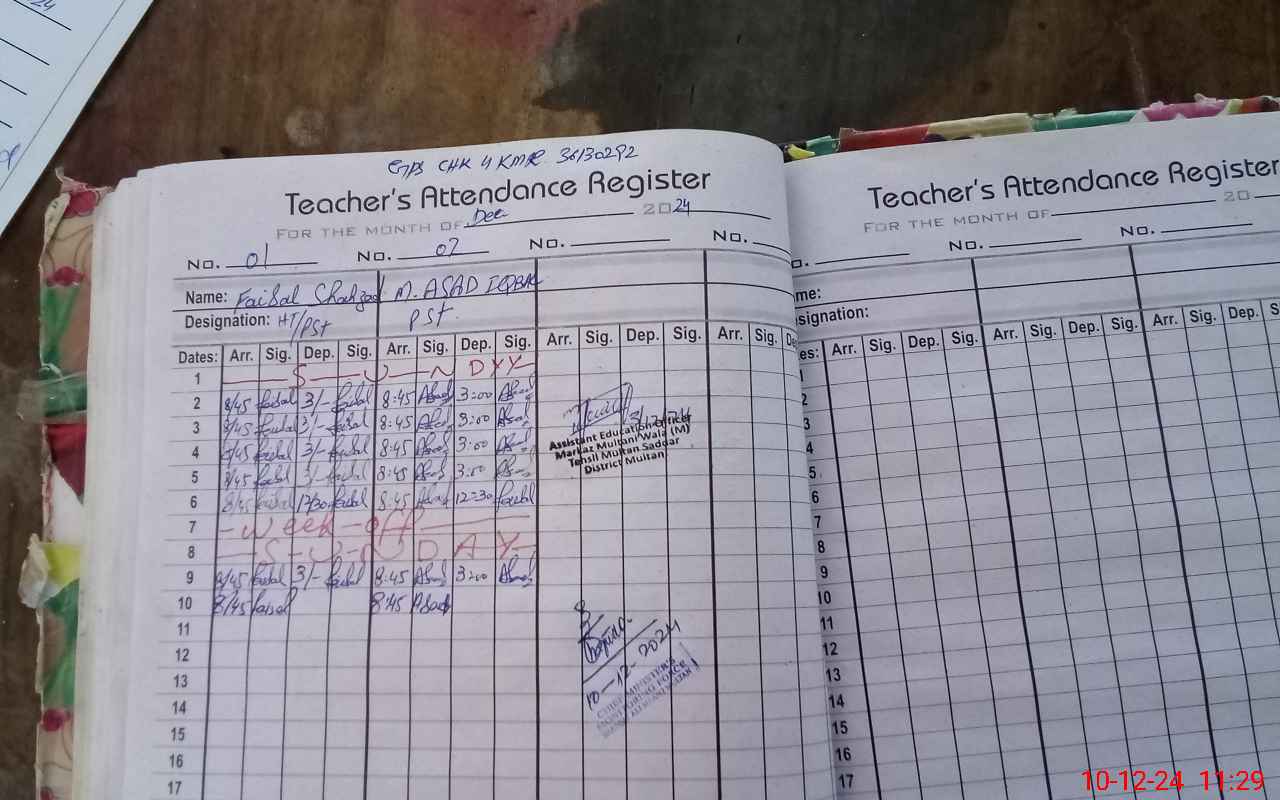 GPS CHK 4 KMR 36130292
Teacher's Attendance Register
FOR THE MONTH OF Dec 2024
No. 01 No. 02 No. No.
Name: Faisal Shahzad M. ASAD IQBAL
Designation: HT/PST PST.
Dates: Arr. Sig. Dep. Sig. Arr. Sig. Dep. Sig. Arr. Sig. Dep. Sig. Arr. Sig. De
1 S U N DAY
2 8/45 faisal 3/- faisal 8:45 Asad 3:00 Asad
3 8/45 faisal 3/- faisal 8:45 Asad 3:00 Asad
4 8/45 faisal 3/- faisal 8:45 Asad 3:00 Asad
5 8/45 faisal 3/- faisal 8:45 Asad 3:00 Asad
6 8/45 faisal 12/30 faisal 8:45 Asad 12:30
7 -Week-off-
8 S-U-N D A Y
9 8/45 faisal 3/- faisal 8:45 Asad 3:00 Asad
10 8/45 faisal 8:45 Asad
11
12
13
14
15
16
17
Assistant Education Officer
Markaz Multani Wala (M)
Tehsil Multan Saddar
District Multan
10-12-2024
CHIEF MINISTER'S
MONITORING FORCE
Teacher's Attendance Register
FOR THE MONTH OF 20
o. No. No.
me:
signation:
es: Arr. Sig. Dep. Sig. Arr. Sig. Dep. Sig. Arr. Sig. De
2
3
4
5
6
7
8
9
10
11
12
13
14
15
16
17
24
10-12-24 11:29